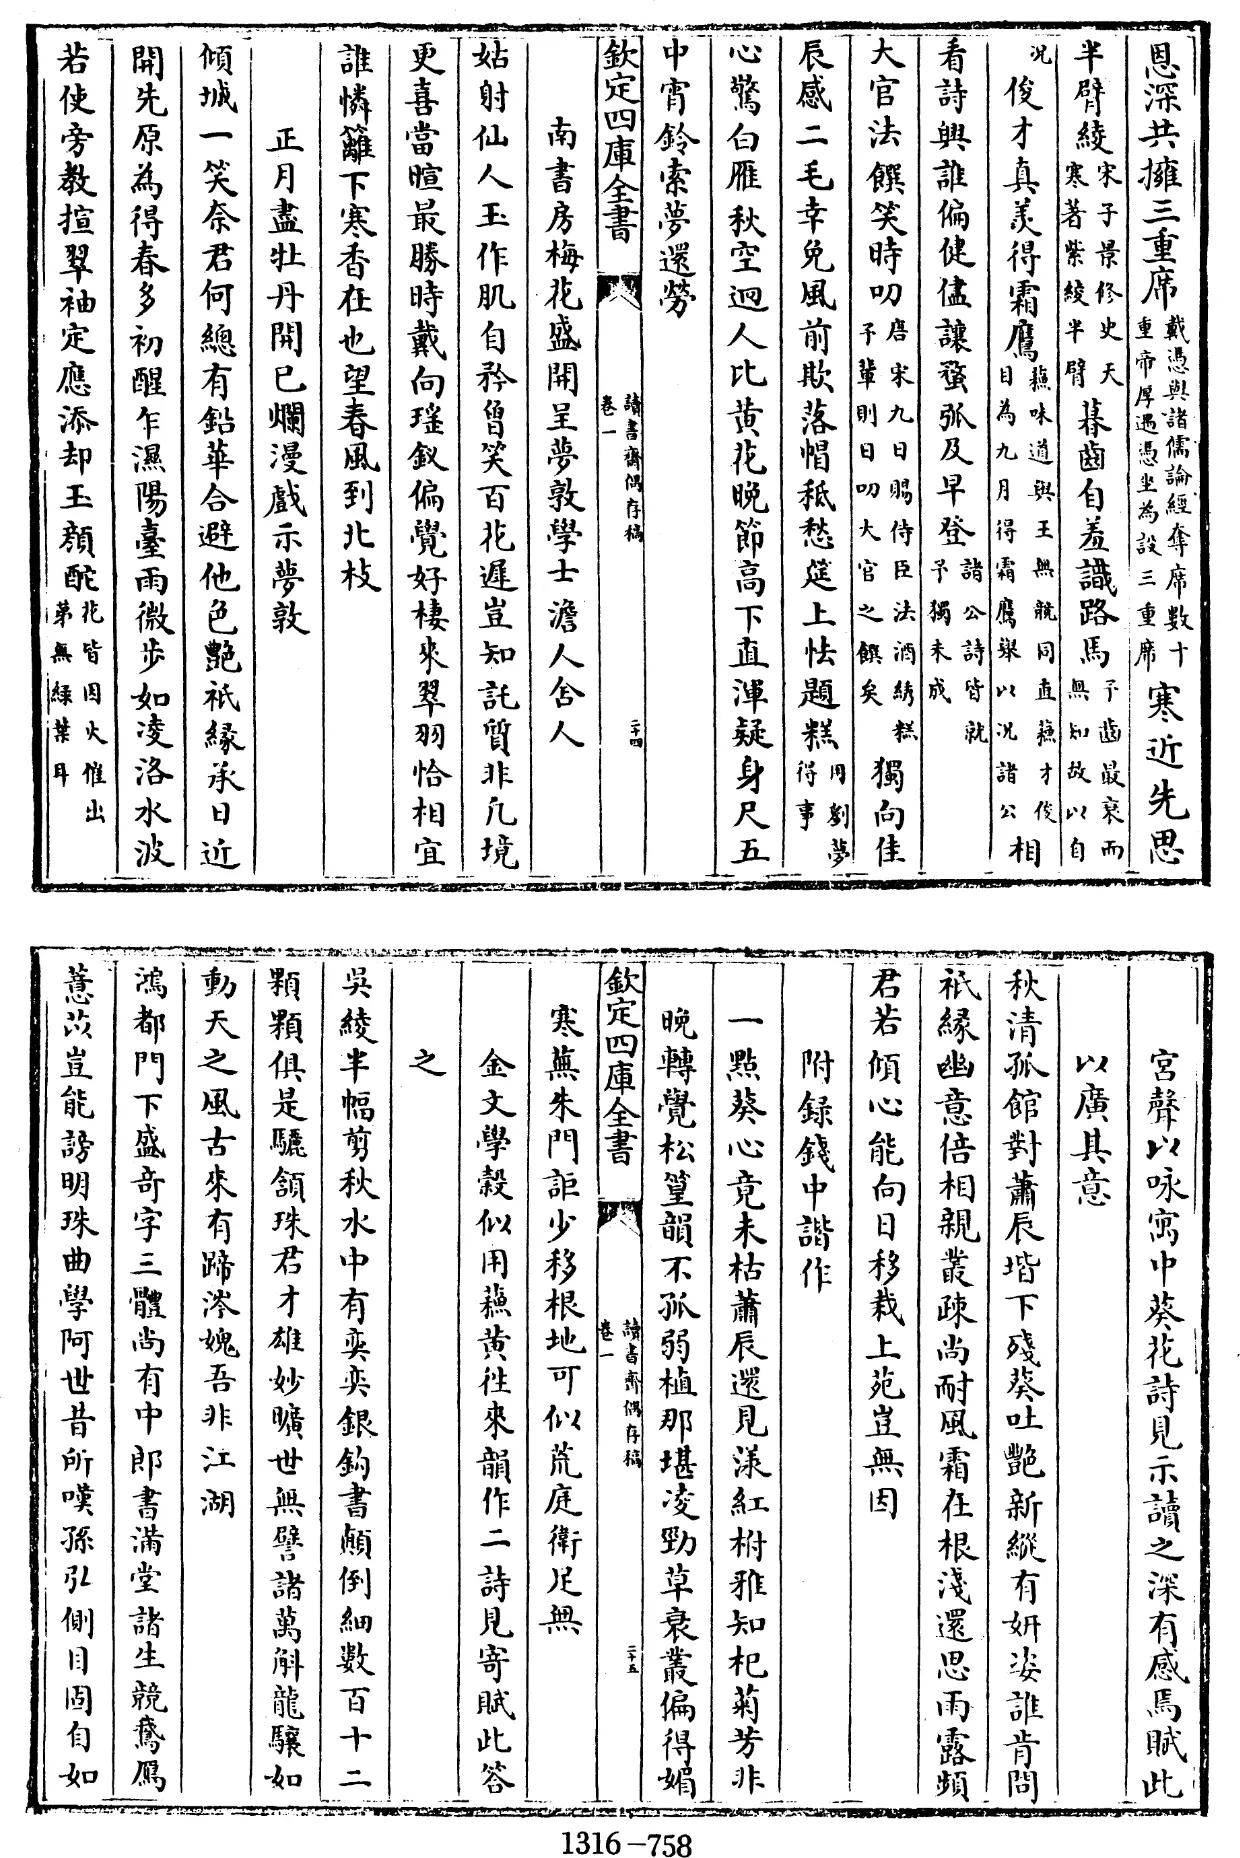 恩深共擁三重席戴憑與諸儒論經奪席數十重帝厚遇憑坐為設三重席寒近先思
半臂綾宋子景修史天寒著紫綾半臂暮齒自羞識路馬予齒最衰而無知故以自
況俊才真羨得霜鷹蘇味道與王無競同直蘇才俊目為九月得霜鷹舉以況諸公相
看詩興誰偏健儘讓蝥弧及早登諸公詩皆就予獨未成
大官法饌笑時叨唐宋九日賜侍臣法酒綉糕予輩則日叨大官之饌矣獨向佳
辰感二毛幸免風前欺落帽秪愁筵上怯題糕用劉夢得事
心驚白雁秋空迥人比黄花晚節高下直渾疑身尺五
中宵鈴索夢還勞
欽定四庫全書
讀書齋偶存稿
卷一
二十四
南書房梅花盛開呈夢敦學士澹人舍人
姑射仙人玉作肌自矜曾笑百花遲豈知託質非凡境
更喜當暄最勝時戴向瑤釵偏覺好棲來翠羽恰相宜
誰憐籬下寒香在也望春風到北枝
正月盡牡丹開已爛漫戲示夢敦
傾城一笑奈君何總有鉛華合避他色艷祇緣承日近
開先原為得春多初醒乍濕陽臺雨微步如凌洛水波
若使旁教揎翠袖定應添却玉顏酡花皆因火催出苐無緑葉耳
宮聲以咏寓中葵花詩見示讀之深有感焉賦此
以廣其意
秋清孤館對蕭辰堦下殘葵吐艷新縱有妍姿誰肯問
祇緣幽意倍相親叢疎尚耐風霜在根淺還思雨露頻
君若傾心能向日移栽上苑豈無因
附録錢中諧作
一點葵心竟未枯蕭辰還見漾紅柎雅知杞菊芳非
晚轉覺松篁韻不孤弱植那堪凌勁草衰叢偏得媚
欽定四庫全書
讀書齋偶存稿
卷一
二十五
寒蕪朱門詎少移根地可似荒庭衛足無
金文學穀似用蘇黄往來韻作二詩見寄賦此答
之
吳綾半幅剪秋水中有奕奕銀鈎書顛倒細數百十二
顆顆俱是驪頷珠君才雄妙曠世無譬諸萬斛龍驤如
動天之風古來有蹄涔媿吾非江湖
鴻都門下盛奇字三體尚有中郎書滿堂諸生競鶩鴈
薏苡豈能謗明珠曲學阿世昔所嘆孫弘側目固自如
1316-758